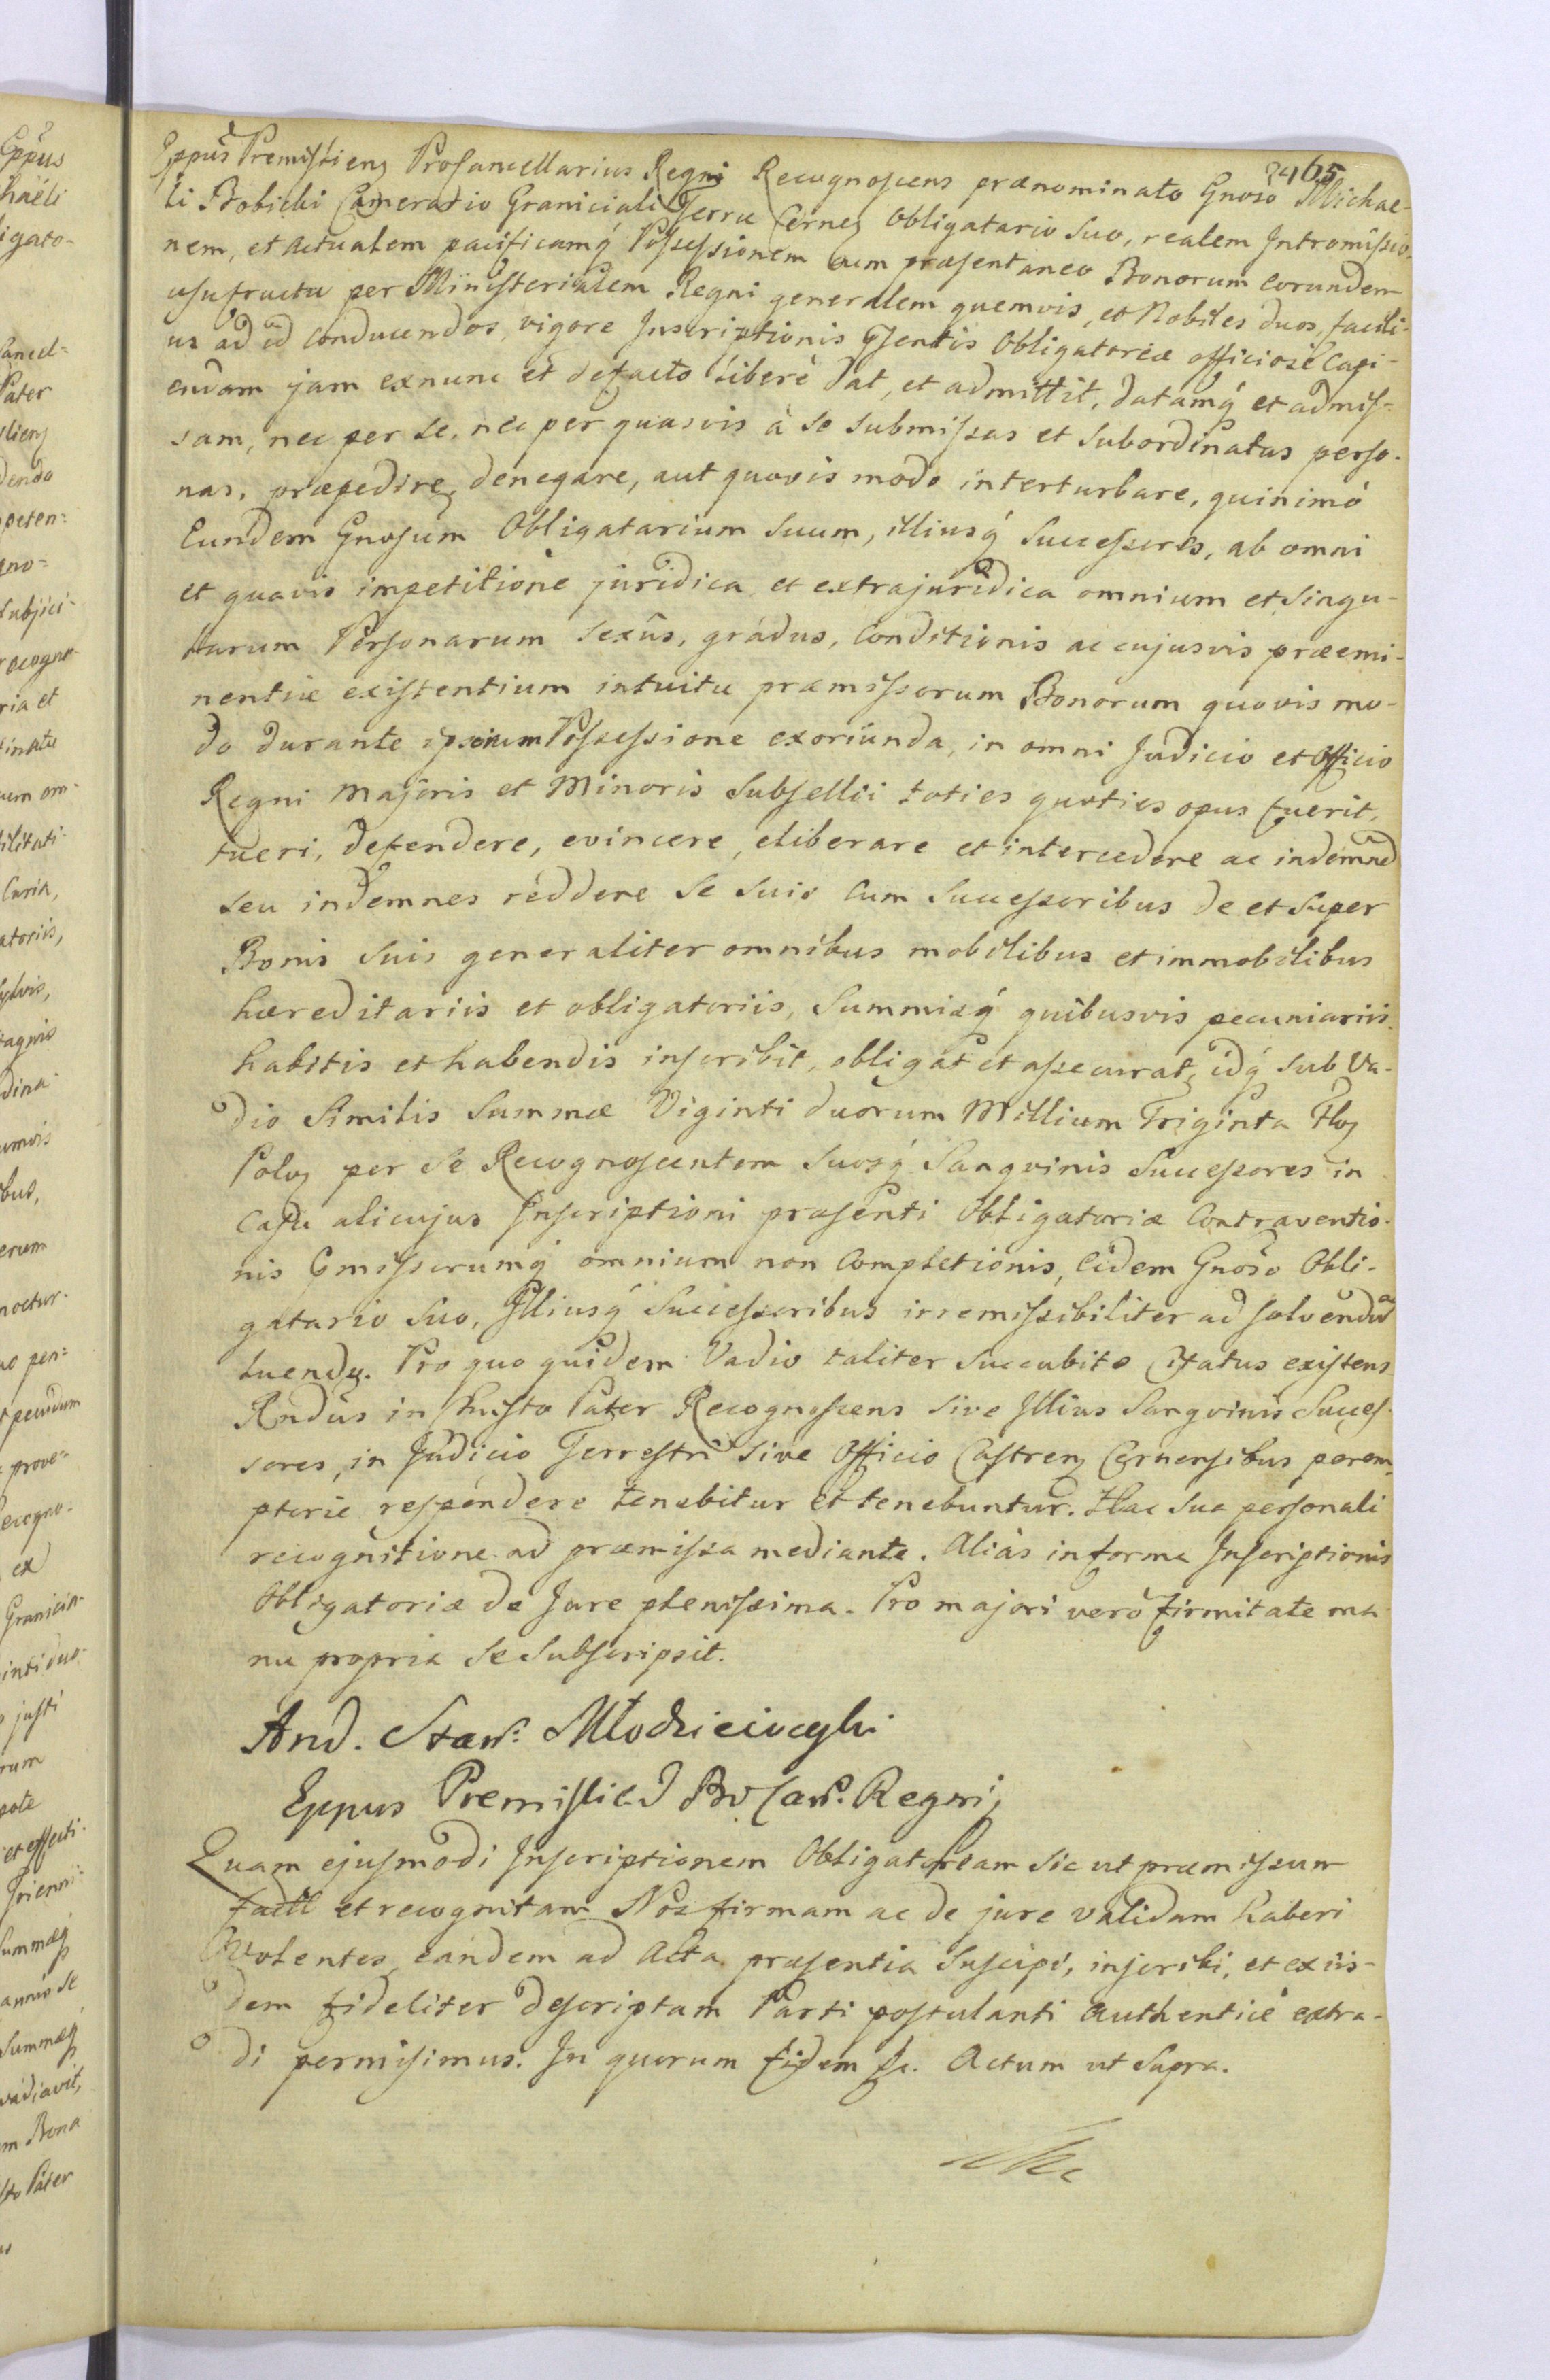 2465
Eppus Premislienʒ Procancellarius Regni Recognoscens prænominato Gnoso Michae-
li Bobicki Camerario Graniciali Terræ Cernen Obligatario Suo, realem Intromissio-
nem, et actualem pacificamq́ Possessionem cum præsentaneo Bonorum eorundem
usufructu per Ministerialem Regni generalem quemvis, et Nobiles duos, facili-
us ad id conducendos, vigore Inscriptionis pṡentis Obligatoriæ officiosè Capi-
endam jam exnunc et defacto liberè dat, et admittit, datamq́ et admis-
sam, nec per se, nec per quasvis à se submissas et subordinatas perso-
nas, præpedire, denegare, aut quovis modo interturbare, quinimò
Eundem Gnosum Obligatarium Suum, illiusq́ Successores, ab omni
et quavis impetitione juridica et extrajuridica omnium et singu-
larum Personarum sexûs, gradus, Conditionis ac cujusvis præemi-
nentiæ existentium intuitu præmissorum Bonorum quovis mo-
do durante ipsorum Possessione exoriunda, in omni Judicio et Officio
Regni Majoris et Minoris Subsellii toties quoties opus fuerit,
tueri, defendere, evincere, eliberare et intercedere ac indemnẽ
seu indemnes reddere Se Suis Cum Successoribus de et super
Bonis Suis generaliter omnibus mobilibus et immobilibus
hæreditariis et obligatoriis, Summisq́ quibusvis pecuniariis
habitis et habendis inscribit, obligat et assecurat, idq́ sub Va-
dio Similis Summæ Viginti duorum Millium Triginta Flor
Polon per Se Recognoscentem Suosq́ Sangvinis Successores in
Casu alicujus Inscriptioni præsenti Obligatoriæ Contraventio-
nis præmissorumq́ omnium non Completionis, Eidem Gnoso Obli-
gatario Suo, Illiusq́ Successoribus irremissibiliter ad solvendũ
luendo. Pro quo quidem Vadio taliter succubito Citatus existens
Rndus in Christo Pater Recognoscens sive Illius Sangvinis Succes-
sores, in Judicio Terrestri sive Officio Castrenʒ Cernensibus perem-
ptorie respondere tenebitur et tenebuntur. Hac sua personali
recognitione ad præmissa mediante. Aliàs in forma Inscriptionis
Obligatoriæ de Jure plenissima. Pro majori verò firmitate ma-
nu propria Se Subscripsit.
And. Stan. Młodzieiowski
Eppus Premisli. Pro Can. Regni,
Quam ejusmodi Inscriptionem Obligatoriam sic ut præmissum
factã et recognitam Nos firmam ac de jure validam haberi
Volentes, eandem ad Acta præsentia Suscipi, inscribi, et ex iis-
dem fideliter descriptam Parti postulanti authenticè extra-
di permisimus. In quorum fidem &c. Actum ut Supra.